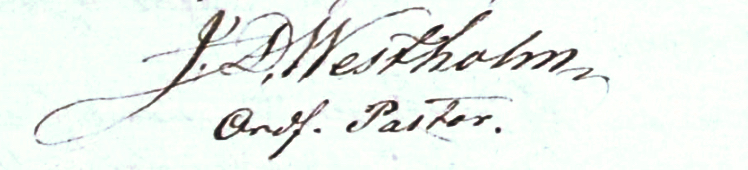 J. D. Westholm,
Ordf. Pastor.